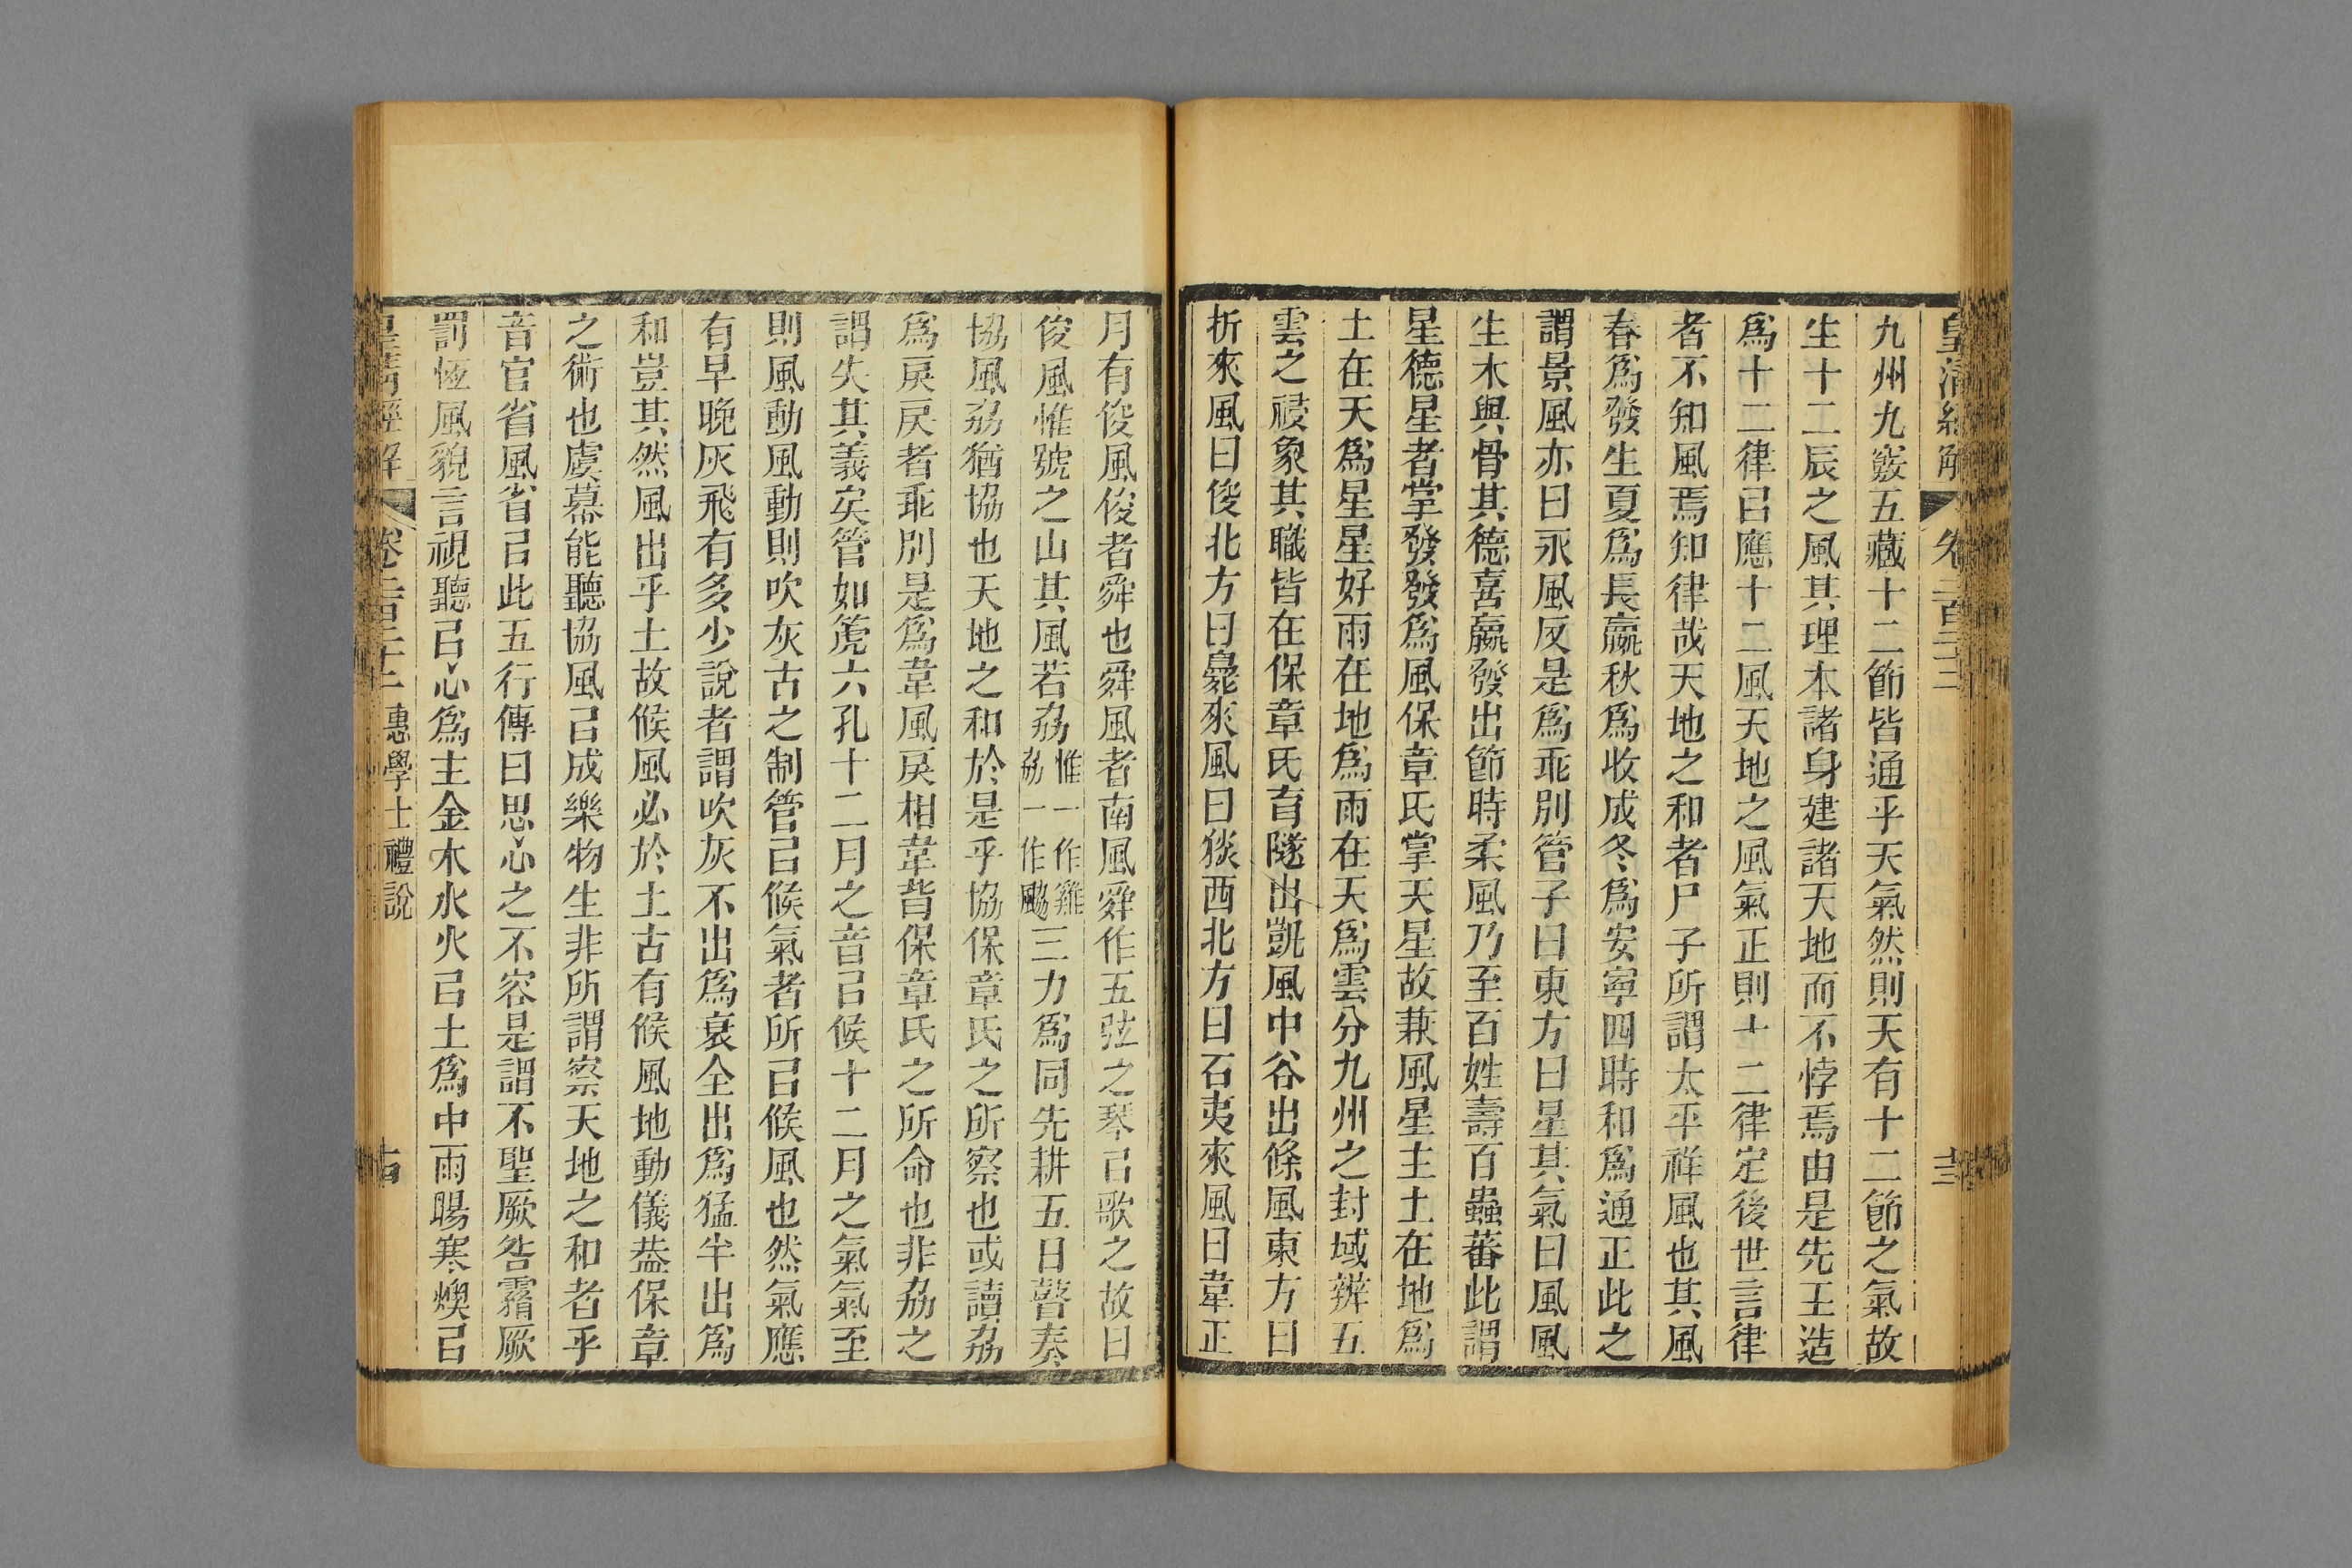 皇清經解 卷二百二十二 十三
九州九竅五藏十二節皆通乎天氣然則天有十二節之氣故
生十二辰之風其理本諸身建諸天地而不悖焉由是先王造
爲十二律㠯應十二風天地之風氣正則十二律定後世言律
者不知風焉知律哉天地之和者尸子所謂太平祥風也其風
春爲發生夏爲長嬴秋爲收成冬爲安寧四時和爲通正此之
謂景風亦曰永風反是爲乖別管子曰東方曰星其氣曰風風
生木與骨其德喜嬴發出節時柔風乃至百姓壽百蟲蕃此謂
星德星者掌發發爲風保章氏掌天星故兼風星主土在地爲
土在天爲星星好雨在地爲雨在天爲雲分九州之封域辨五
雲之祲象其職皆在保章氏𠧪隧出凱風中谷出條風東方曰
折來風曰俊北方曰㲋來風曰狻西北方曰石夷來風曰韋正
月有俊風俊者舜也舜風者南風舜作五弦之琴㠯歌之故曰
俊風惟號之山其風若劦惟一作雞劦一作飈三力爲同先耕五日瞽奏
協風劦猶協也天地之和於是乎協保章氏之所察也或讀劦
爲戾戾者乖別是爲韋風戾相韋背保章氏之所命也非劦之
謂失其義矣管如箎六孔十二月之音㠯候十二月之氣氣至
則風動風動則吹灰古之制管㠯候氣者所㠯候風也然氣應
有早晚灰飛有多少說者謂吹灰不出爲衰全出爲猛半出爲
和豈其然風出乎土故候風必於土古有候風地動儀葢保章
之術也虞慕能聽協風㠯成樂物生非所謂察天地之和者乎
音官省風省㠯此五行傳曰思心之不容是謂不聖厥咎霿厥
罰恆風貌言視聽㠯心爲主金木水火㠯土爲中雨暘寒燠㠯
皇清經解 卷二百二十二 惠學士禮說 十四